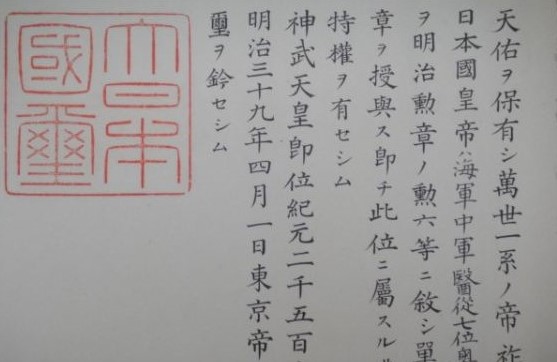 天佑ヲ保有シ萬世一系ノ帝祚
日本國皇帝ハ海軍中軍醫從七位奥
ヲ明治勲章ノ勲六等ニ敘シ單
章ヲ授與ス即チ此位ニ屬スル
特權ヲ有セシム
神武天皇即位紀元二千五百
明治三十九年四月一日東京帝
璽ヲ鈐セシム
大日本
國璽